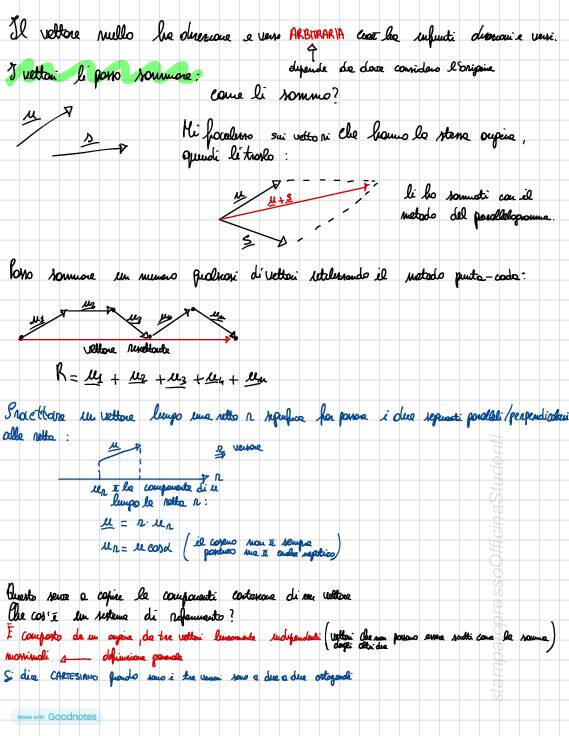 Il vettore nullo ha direzione e verso ARBITRARIA cioè ha infiniti direzioni e versi.
dipende da dove considero l'origine
I vettori li posso sommare:
come li sommo?
u
s
Mi focalizzo sui vettori che hanno la stessa origine,
quindi li traslo:
u
u+s
s
li ho sommati con il
metodo del parallelogramma.
Posso sommare un numero qualsiasi di vettori utilizzando il metodo punta-coda:
u1 u2 u3 u4 un
vettore risultante
R = u1 + u2 + u3 + u4 + un
Proiettare un vettore lungo una retta r significa far passare i due segmenti paralleli/perpendicolari
alla retta:
u
r versore
r
ur è la componente di u
lungo la retta r:
u = r · ur
ur = u cosα (il coseno non è sempre
positivo ma è anche negativo)
Questo serve a capire le componenti cartesiane di un vettore
Che cos'è un sistema di riferimento?
È composto da un origine, da tre vettori linearmente indipendenti (vettori che non possono essere scritti come la somma
degli altri due)
massimali ← definizione generale
Si dice CARTESIANO quando sono i tre versori sono a due a due ortogonali
stampepressoOfficinaStudenti
Made with Goodnotes